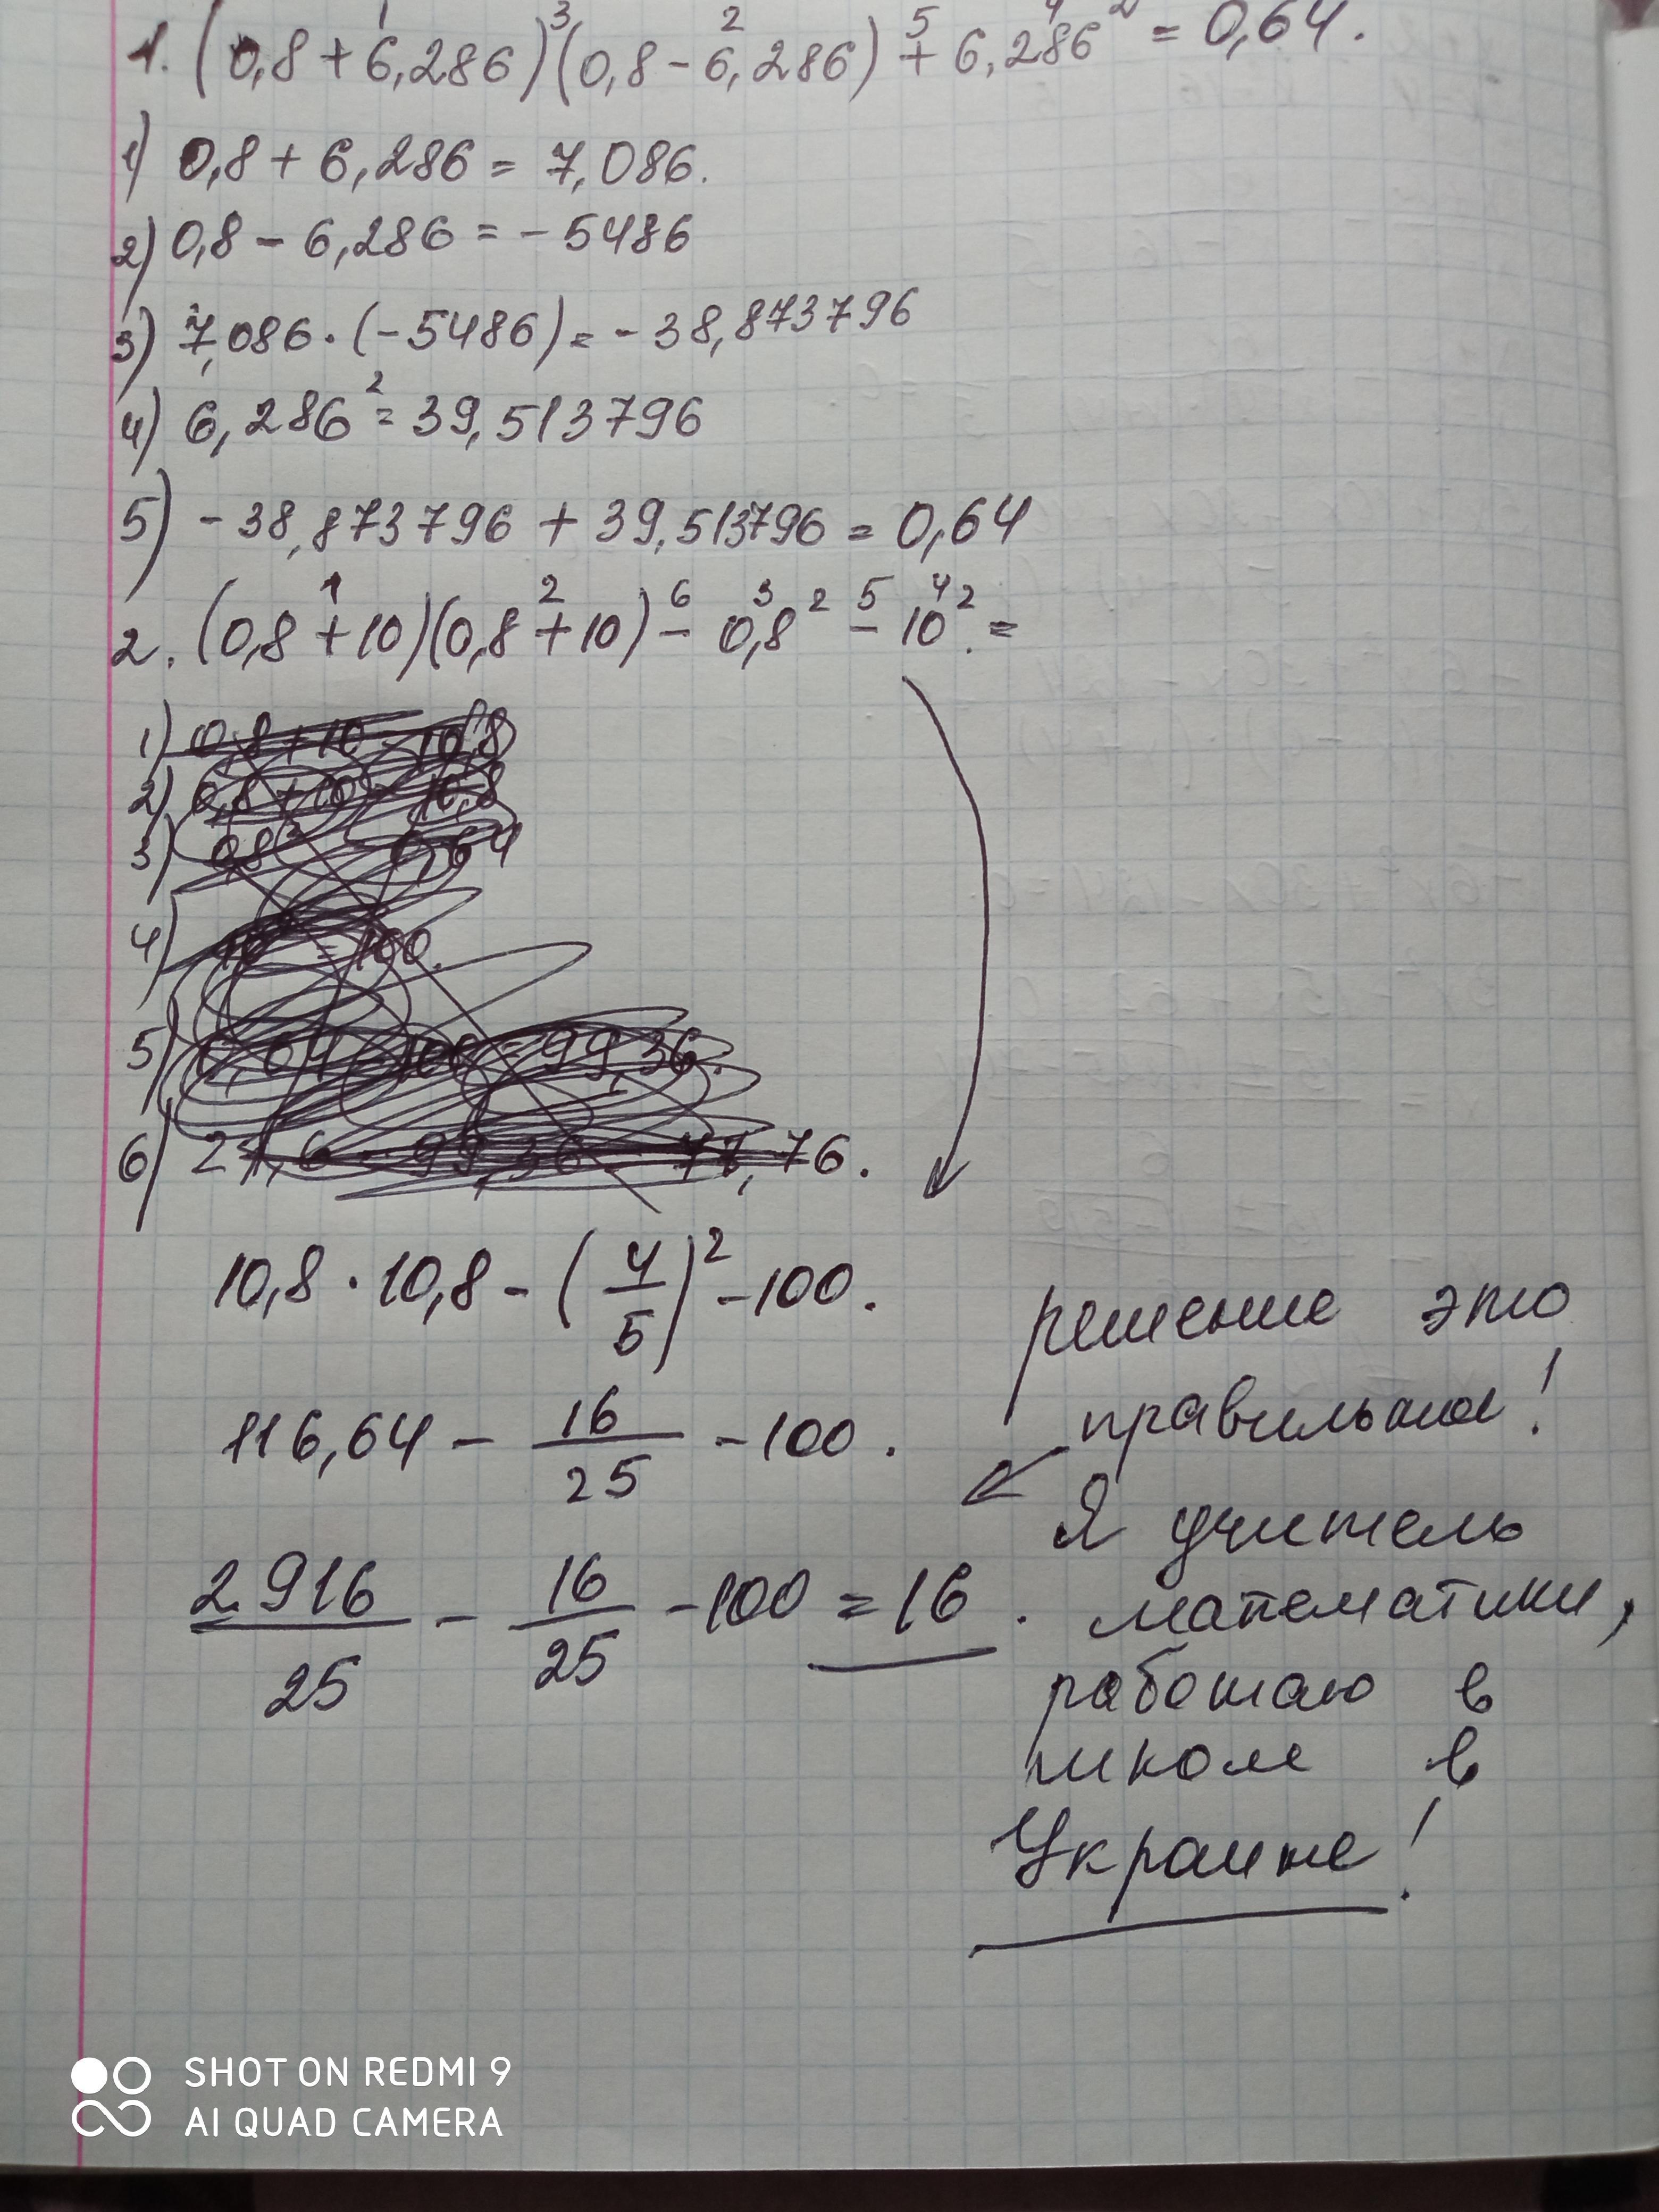 1. (0,8 + 6,286)(0,8 - 6,286) + 6,286² = 0,64.
1) 0,8 + 6,286 = 7,086.
2) 0,8 - 6,286 = - 5486
3) 7,086 · (- 5486) = - 38,873796
4) 6,286² = 39,513796
5) - 38,873796 + 39,513796 = 0,64
2. (0,8 + 10)(0,8 + 10) - 0,8² - 10² =
1) 0,8 + 10 = 10,8
2) 0,8 + 10 = 10,8
3) 0,8² = 0,64
4) 10² = 100.
5) 0,64 - 100 = 99,36.
6) 21,6 - 99,36 = 77,76.
10,8 · 10,8 - (4/5)² - 100.
116,64 - 16/25 - 100.
2916/25 - 16/25 - 100 = 16.
решение это
правильное!
Я учитель
математики,
работаю в
школе в
Украине!
SHOT ON REDMI 9
AI QUAD CAMERA